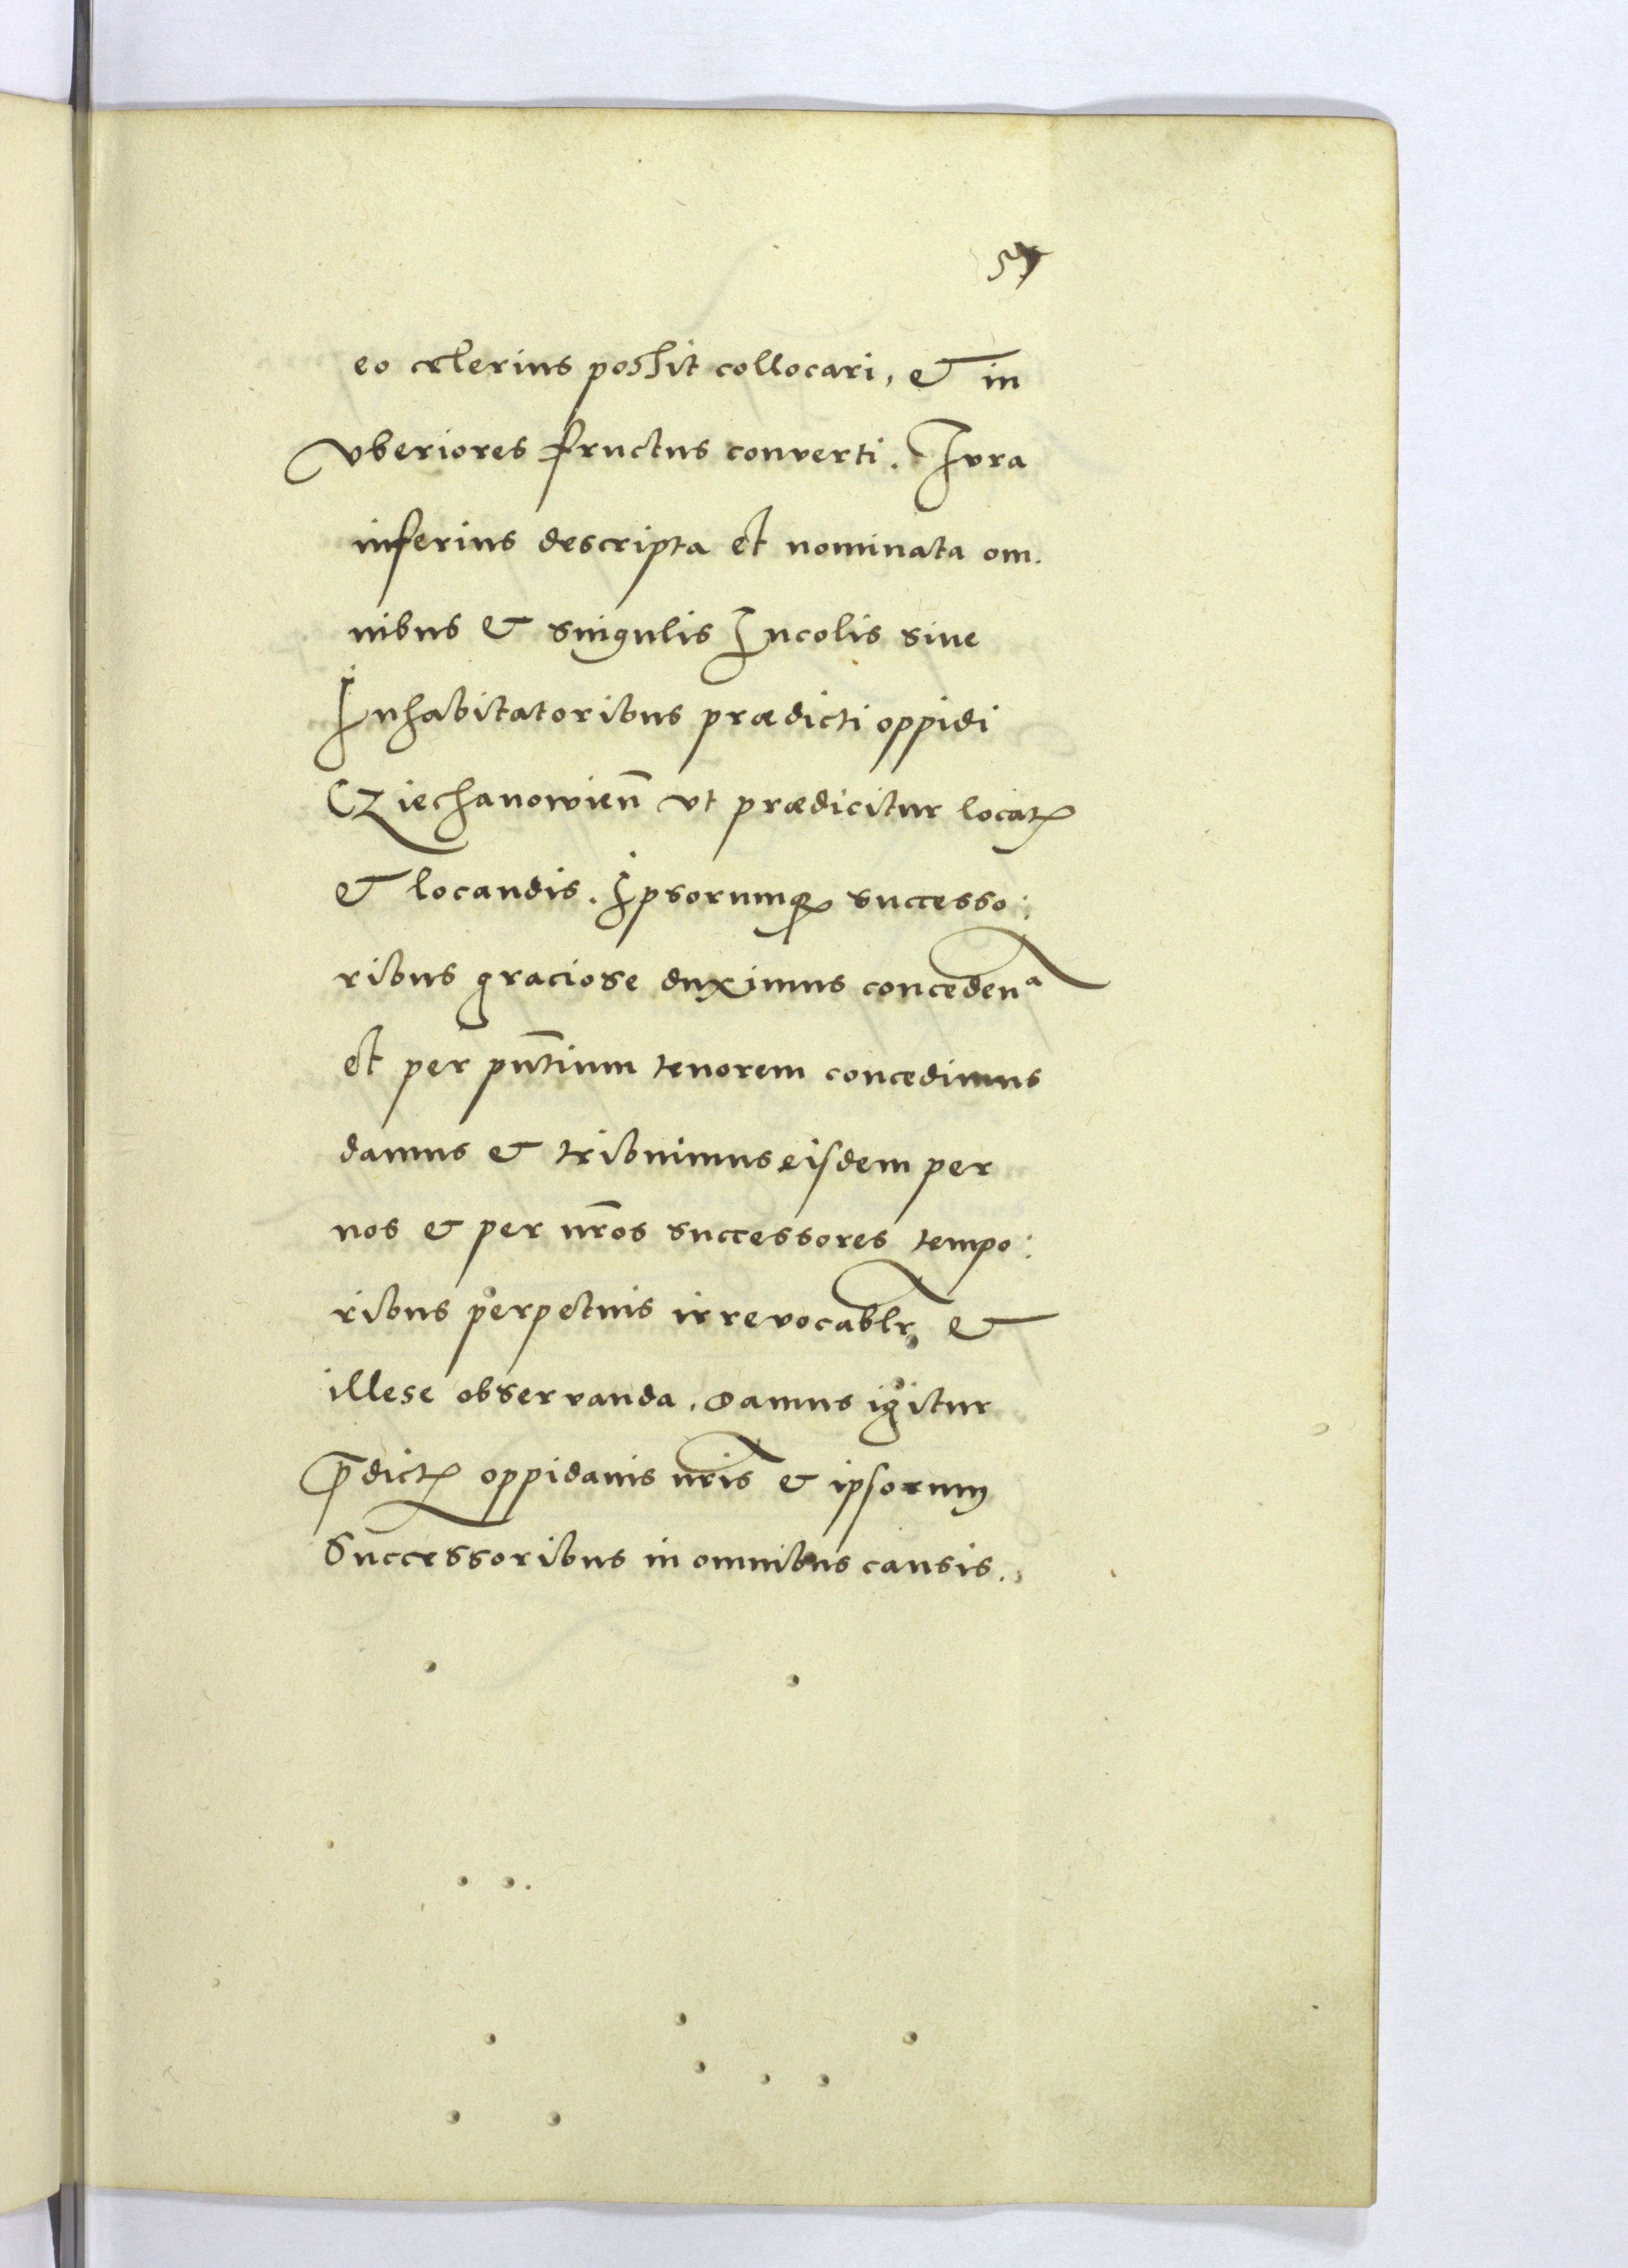 57
eo celerius possit collocari, et in
vberiores fructus converti. Jvra
inferius descripta et nominata om.
nibus et singulis Incolis sive
Inhabitatoribus prædicti oppidi
Cziechanowień vt prædicitur locatꝭ
et locandis. Ipsorumqꝫ successo:
ribus graciose duximus concedenᵃ
et per pn̄tium tenorem concedimus
damus et tribuimus eisdem per
nos et per nr̄os successores tempo:
ribus perpetuis irrevocablr̄ et
illese observanda. Damus igitur
p̄dictꝭ oppidanis nr̄is et ipsorum
Successoribus in omnibus causis.